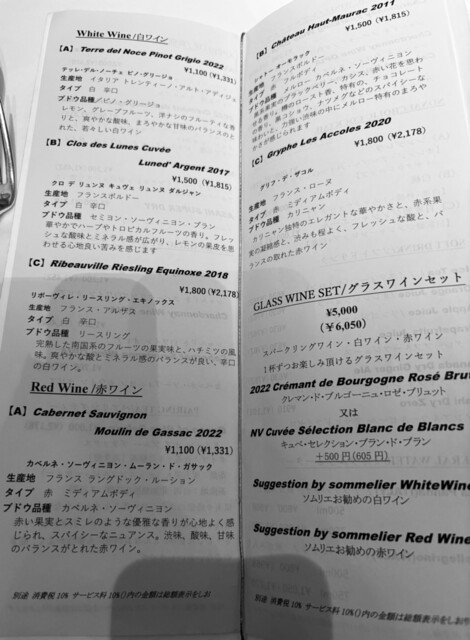 White Wine/白ワイン
[A] Terre del Noce Pinot Grigio 2022
¥1,100 (¥1,331)
テッレ・デル・ノーチェ ピノ・グリージョ
生産地 イタリア トレンティーノ・アルト・アディジェ
タイプ 白 辛口
ブドウ品種/ピノ・グリージョ
レモン、グレープフルーツ、洋ナシのフルーティな香
りと、爽やかな酸味。まろやかな甘味のバランスのと
れた、若々しい白ワイン
[B] Clos des Lunes Cuvée
Luned' Argent 2017
¥1,500 (¥1,815)
クロ デ リュンヌ キュヴェ リュンヌ ダルジャン
生産地 フランスボルドー
タイプ 白 辛口
ブドウ品種 セミヨン・ソーヴィニヨン・ブラン
華やかでハーブやトロピカルフルーツの香り。フレッ
シュな酸味とミネラル感が広がり、レモンの果皮を思
わせる心地良い苦みを感じます
[C] Ribeauville Riesling Equinoxe 2018
¥1,800 (¥2,178)
リボーヴィレ・リースリング・エキノックス
生産地 フランス・アルザス
タイプ 白 辛口
ブドウ品種 リースリング
完熟した南国系のフルーツの果実味と、ハチミツの風
味。爽やかな酸とミネラル感のバランスが良い、辛口
の白ワイン。
Red Wine/赤ワイン
[A] Cabernet Sauvignon
Moulin de Gassac 2022
¥1,100 (¥1,331)
カベルネ・ソーヴィニヨン・ムーラン・ド・ガサック
生産地 フランス ラングドック・ルーション
タイプ 赤 ミディアムボディ
ブドウ品種 カベルネ・ソーヴィニヨン
赤い果実とスミレのような優雅な香りが心地よく感
じられ、スパイシーなニュアンス。渋味、酸味、甘味
のバランスがとれた赤ワイン。
別途 消費税 10% サービス料 10%()内の金額は総額表示をしお
[B] Château Haut-Maurac 2011
¥1,500 (¥1,815)
シャトー・オーモラック
生産地 フランスボルドー
タイプ 赤 フルボディ
ブドウ品種 メルロー カベルネ・ソーヴィニヨン
黒系果実のブラックベリー、カシス、赤い花を思わ
せる香り。樽のロースト香、特有の、チョコレート
や黒コショウ、ナツメグなどのスパイシーな
味わいと、力強い渋味の中にメルロー特有のまろや
かさが感じられます
[C] Gryphe Les Accoles 2020
¥1,800 (¥2,178)
グリフ・デ・ザコル
生産地 フランス・ローヌ
タイプ 赤 ミディアムボディ
ブドウ品種 カリニャン
カリニャン独特のエレガントな華やかさと、赤系果
実の凝縮感と、渋みも程よく、フレッシュな酸と、バ
ランスの取れた赤ワイン
GLASS WINE SET/グラスワインセット
¥5,000
(¥6,050)
スパークリングワイン・白ワイン・赤ワイン
1杯ずつお楽しみ頂けるグラスワインセット
2022 Crémant de Bourgogne Rosé Bru
クレマン・ド・ブルゴーニュ・ロゼ・ブリュット
又は
NV Cuvée Sélection Blanc de Blancs
キュベ・セレクション・ブラン・ド・ブラン
+500円(605円)
Suggestion by sommelier WhiteWine
ソムリエお勧めの白ワイン
Suggestion by sommelier Red Wine
ソムリエお勧めの赤ワイン
別途 消費税 10% サービス料 10%()内の金額は総額表示をしお